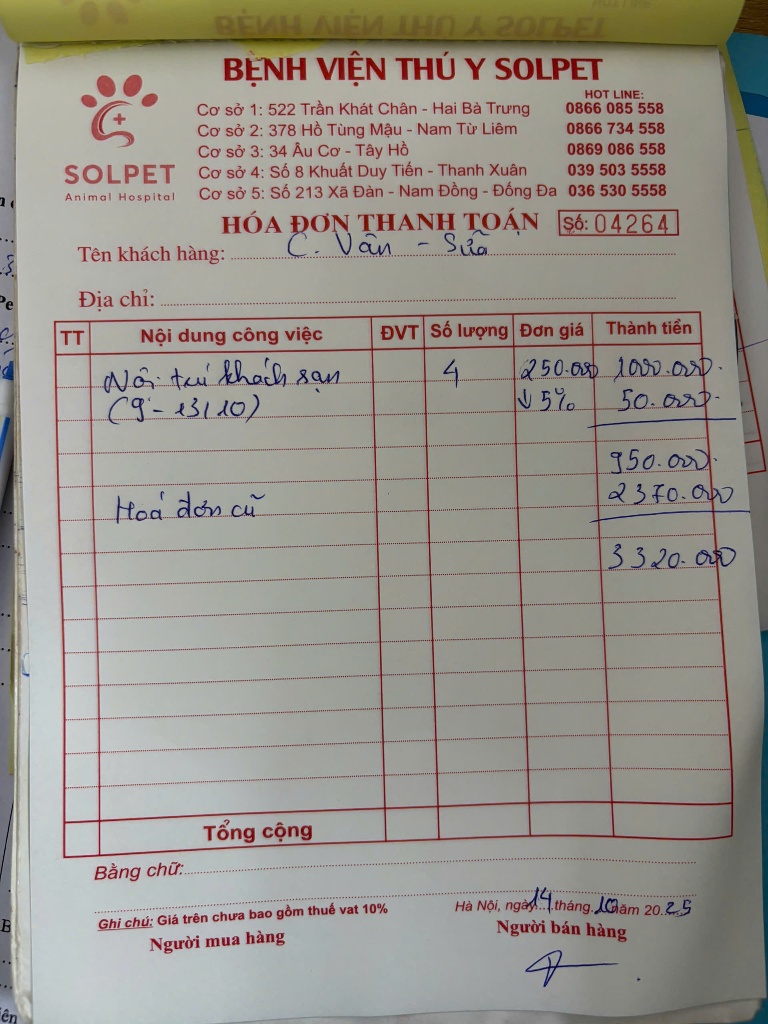 BỆNH VIỆN THÚ Y SOLPET
HOT LINE:
Cơ sở 1: 522 Trần Khát Chân - Hai Bà Trưng 0866 085 558
Cơ sở 2: 378 Hồ Tùng Mậu - Nam Từ Liêm 0866 734 558
Cơ sở 3: 34 Âu Cơ - Tây Hồ 0869 086 558
Cơ sở 4: Số 8 Khuất Duy Tiến - Thanh Xuân 039 503 5558
Cơ sở 5: Số 213 Xã Đàn - Nam Đồng - Đống Đa 036 530 5558
SOLPET
Animal Hospital
HÓA ĐƠN THANH TOÁN Số: 04264
Tên khách hàng: C. Vân - Sữa
Địa chỉ:
TT Nội dung công việc ĐVT Số lượng Đơn giá Thành tiền
Nội trú khách sạn 4 250.000 1000.000
(9 - 13/10) ↓ 5% 50.000
950.000
Hoá đơn cũ 2370.000
3320.000
Tổng cộng
Bằng chữ:
Ghi chú: Giá trên chưa bao gồm thuế vat 10%
Hà Nội, ngày 14 tháng 10 năm 2025
Người mua hàng Người bán hàng